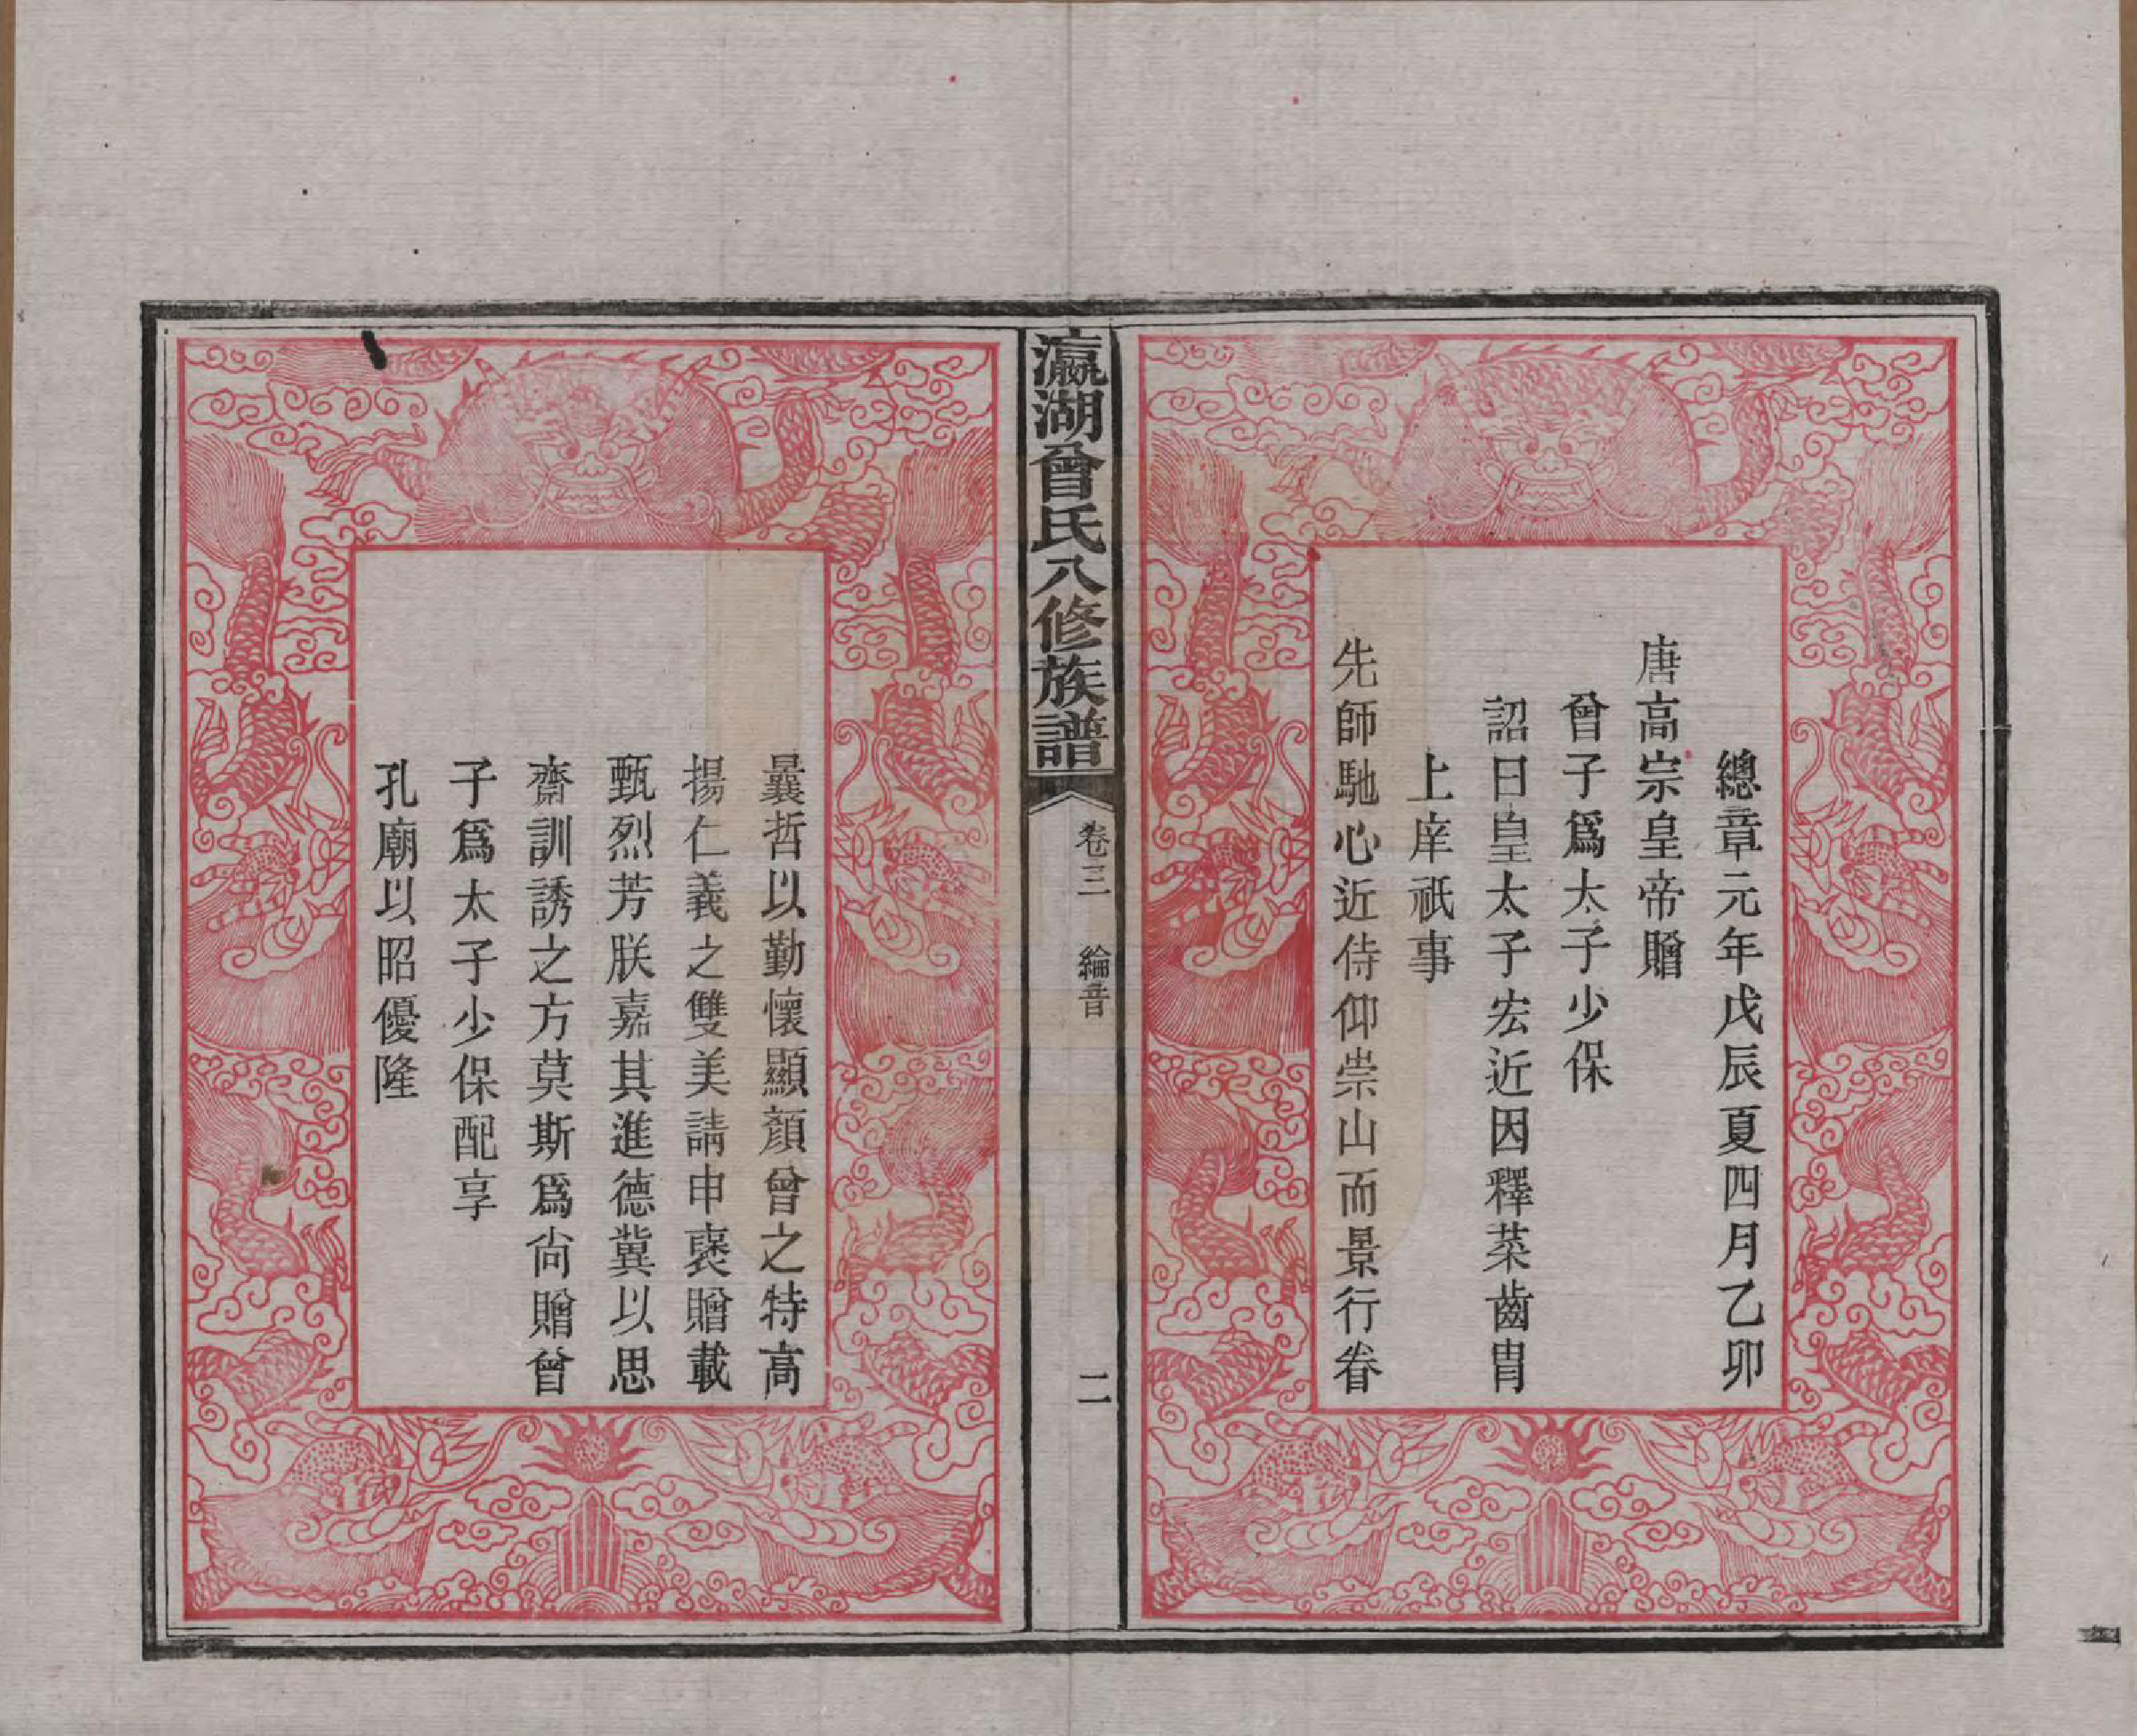 總章元年戊辰夏四月乙卯
唐高宗皇帝贈
曾子爲太子少保
詔曰皇太子宏近因釋菜齒胄
上庠祇事
先師馳心近侍仰崇山而景行眷
瀛湖曾氏八修族譜
卷三
綸音
二
曩哲以勤懷顯顏曾之特高
揚仁義之雙美請申襃贈載
甄烈芳朕嘉其進德冀以思
齋訓誘之方莫斯爲尙贈曾
子爲太子少保配享
孔廟以昭優隆